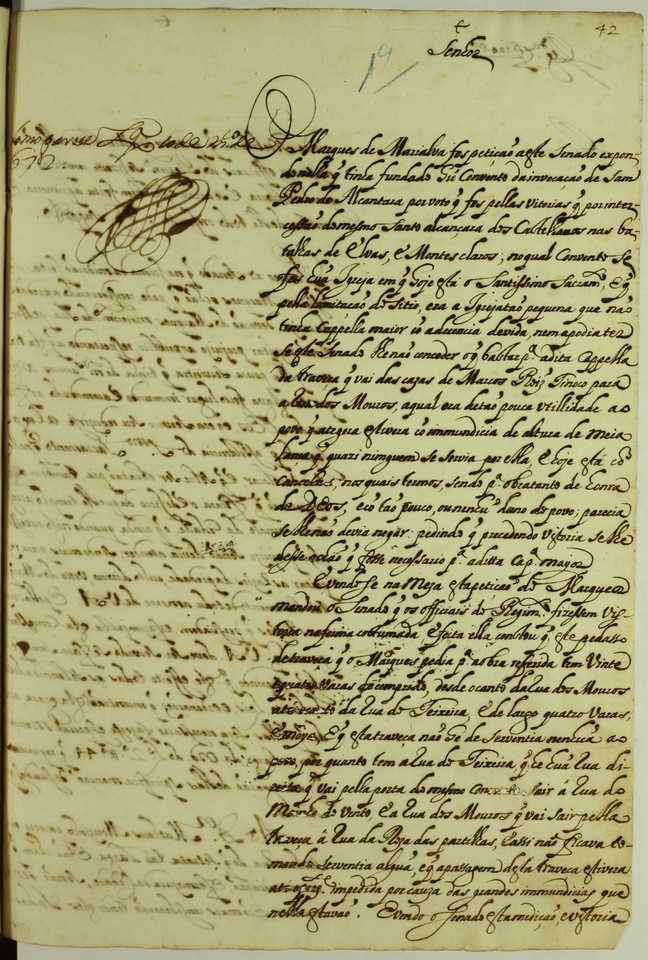 42
Senhor
19
672
O Marques de Marialva fes petição a este Senado expon
do nella q̃ tinha fundado hũ Convento da invocação de Sam
Pedro de Alcantara por voto q̃ fes pellas vitorias q̃ por inter
cessão do mesmo Santo alcançara dos Castelhanos nas ba
talhas de Elvas, e Montes claros; no qual Convento se
fes hũa Igreja em q̃ hoje está o Santissimo Sacram.to, e q̃
pella limitação do sitio, era a Igreja tão pequena que não
tinha Cappella maior cõ a decencia devida, nem a podia ter
se este Senado lhe não conceder o q̃ bastar p.a a dita Cappella
da traveça q̃ vai das cazas de Marcos Roiz Tinoco para
a Rua dos Mouros, a qual era de tão pouca utillidade ao
povo q̃ ategora estivera cõ immundicia de altura de meia
lança q̃ quazi ninguem se servia por ella, e hoje está cõ
cancelas; nos quais termos, sendo p.a obra tanto de honra
de Deos, e cõ tão pouco, ou nenhũ dano do povo; parecia
se lhe não devia negar: pedindo q̃ precedendo vistoria se lhe
desse o chão q̃ fosse necessario p.a a ditta Cap.a mayor
E vendo se na Meza esta petição do Marques
mandou o Senado q̃ os officiais do Regim.to fizessem vis-
toria na forma costumada, e feita ella constou q̃ este pedaço
de traveça q̃ o Marques pedia p.a a obra referida tem vinte
e quatro varas de comprido, desde o canto da Rua dos Mouros
até o canto da Rua do Teixeira, e de largo quatro varas,
e meya. E q̃ esta traveça não he de serventia nenhũa ao
povo, por quanto tem a Rua do Teixeira q̃ he hũa Rua di
reita q̃ vai pella porta do mesmo Convento sair á Rua do
Moinho do Vento, e a Rua dos Mouros q̃ vai sair pella
traveça á Rua da Roza das partilhas, e assi não ficava to
mando serventia algũa, e q̃ a passagem desta traveça estivera
até o prez.te impedida por cauza das grandes immundicias que
nella estavão. E vendo o Senado esta medição, e vistoria